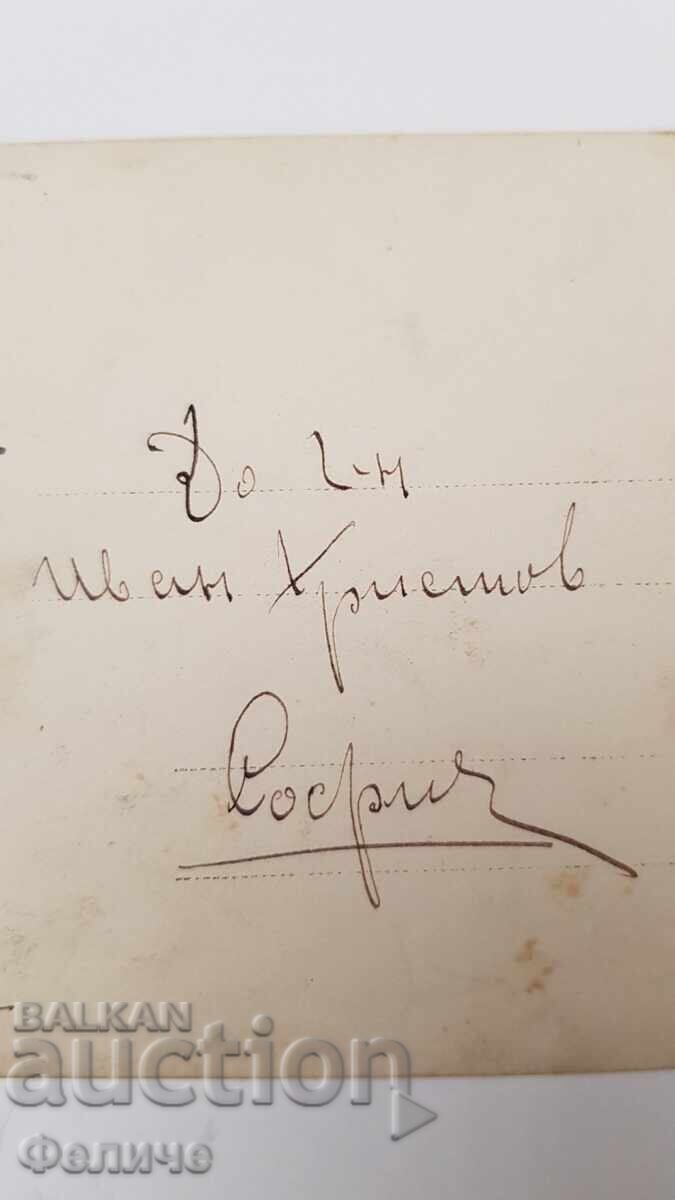 До г-н
Иван Христов
София
BALKAN
auction
Феличе